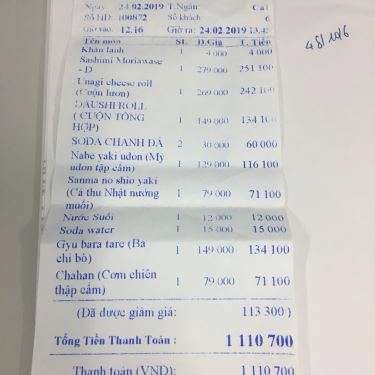 Ngày: 24.02.2019 T.Ngân: Ca1
Số HĐ: 100872 Số khách 6
Giờ vào: 12.16 Giờ ra: 24.02.2019 13.4
Tên món SL Đ.Giá T.Tiền
Khăn lạnh 1 4 000 4 000
Sashimi Moriawase
- D 1 279 000 251 100
Unagi cheese roll
(Cuộn lươn) 1 269 000 242 100
DAUSHI ROLL
( CUỘN TỔNG 1 149 000 134 100
HỢP)
SODA CHANH ĐÁ 2 30 000 60 000
Nabe yaki udon (Mỳ
udon tập cẩm) 1 129 000 116 100
Sanma no shio yaki
(Cá thu Nhật nướng 1 79 000 71 100
muối)
Nước Suối 1 12 000 12 000
Soda water 1 15 000 15 000
Gyu bara tare (Ba
chỉ bò) 1 149 000 134 100
Chahan (Cơm chiên
thập cẩm) 1 79 000 71 100
(Đã được giảm giá: 113 300 )
Tổng Tiền Thanh Toán : 1 110 700
Thanh toán (VND): 1 110 700